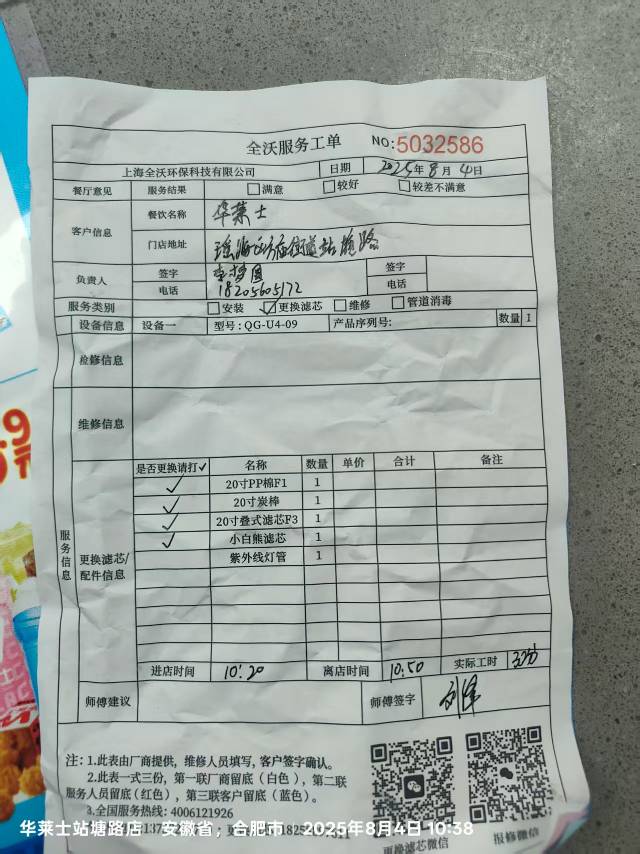 全沃服务工单 NO:5032586
上海全沃环保科技有限公司 日期 2025年8月4日
餐厅意见 服务结果 □满意 □较好 □较差不满意
客户信息 餐饮名称 华莱士
门店地址 站塘路
负责人 签字 签字
电话 18205605172 电话
服务类别 □安装 ☑更换滤芯 □维修 □管道消毒
设备信息 设备一 型号:QG-U4-09 产品序列号: 数量 1
检修信息
维修信息
服务信息
更换滤芯/配件信息
是否更换请打✓ 名称 数量 单价 合计 备注
✓ 20寸PP棉F1 1
✓ 20寸炭棒 1
✓ 20寸叠式滤芯F3 1
✓ 小白熊滤芯 1
紫外线灯管 1
进店时间 10:20 离店时间 10:50 实际工时
师傅建议 师傅签字
注:1.此表由厂商提供,维修人员填写,客户签字确认。
2.此表一式三份,第一联厂商留底(白色),第二联
服务人员留底(红色),第三联客户留底(蓝色)。
3.全国服务热线:4006121926
更换滤芯微信 报修微信
华莱士站塘路店 安徽省,合肥市 2025年8月4日 10:38
9
元